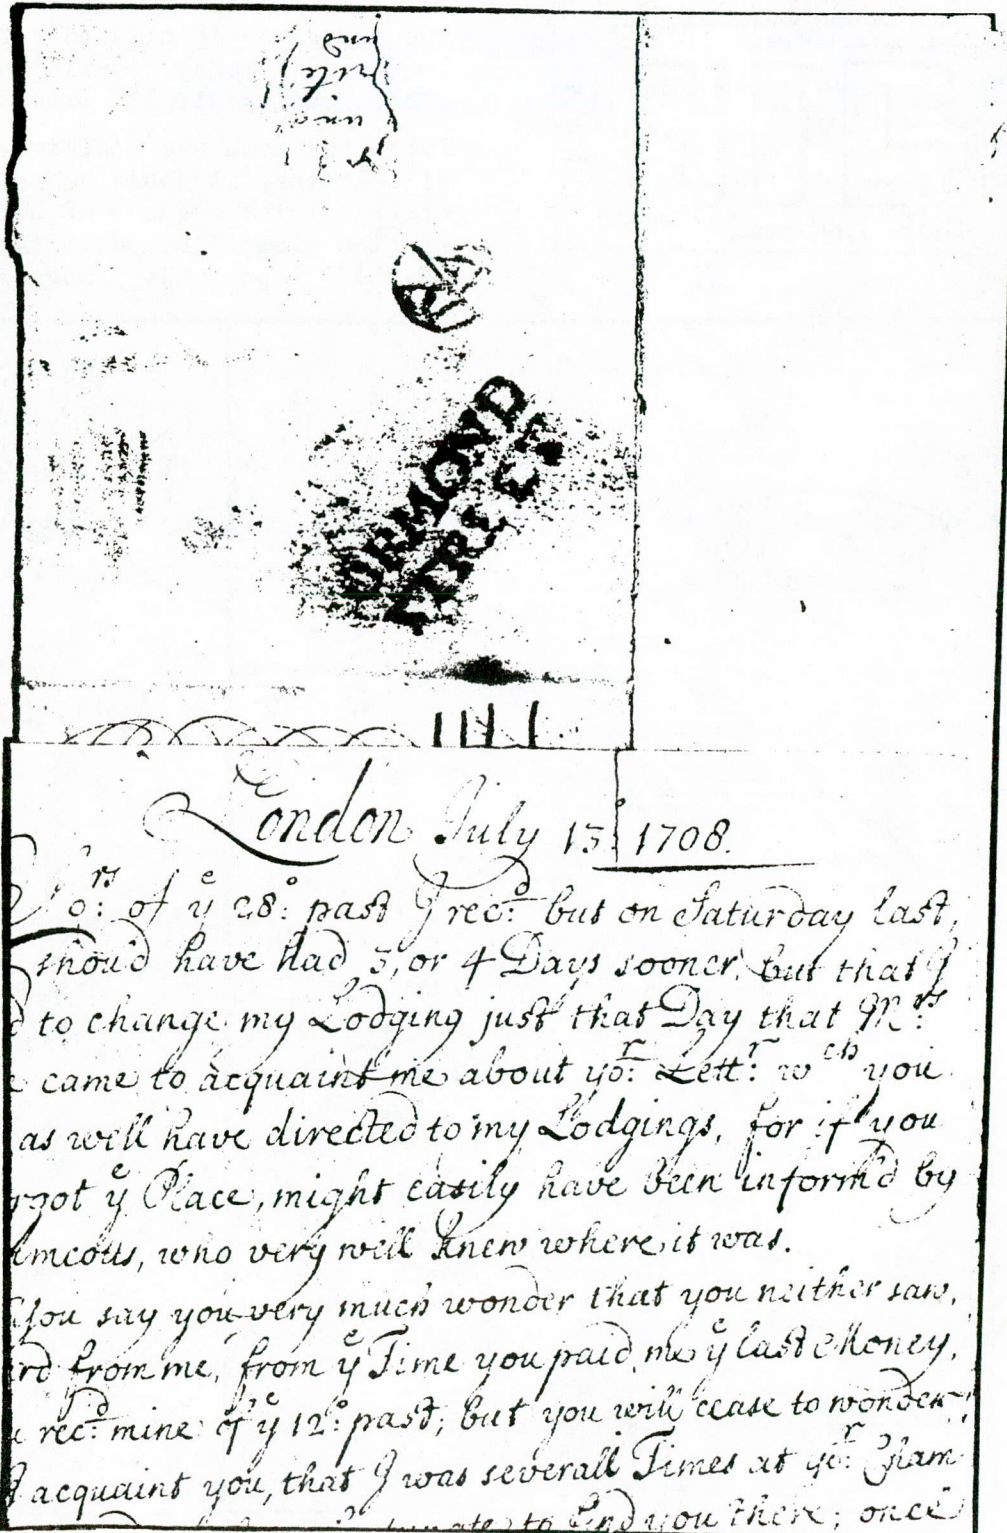 ORMOND
STREET
London July 13: 1708.
Yo:rs of ye 28:o past I rec:d but on Saturday last,
shou'd have had 3, or 4 Days sooner, but that I
d to change my Lodging just that Day that M:rs
e came to acquaint me about yo:r Lett:r wch you
as well have directed to my Lodgings, for if you
rgot ye Place, might easily have been inform'd by
who very well knew where it was.
You say you very much wonder that you neither saw,
ard from me, from ye Time you paid me ye last Money,
u rec:d mine of ye 12:o past; but you will cease to wonder
I acquaint you, that I was severall Times at yo:r Cham
to find you there; once